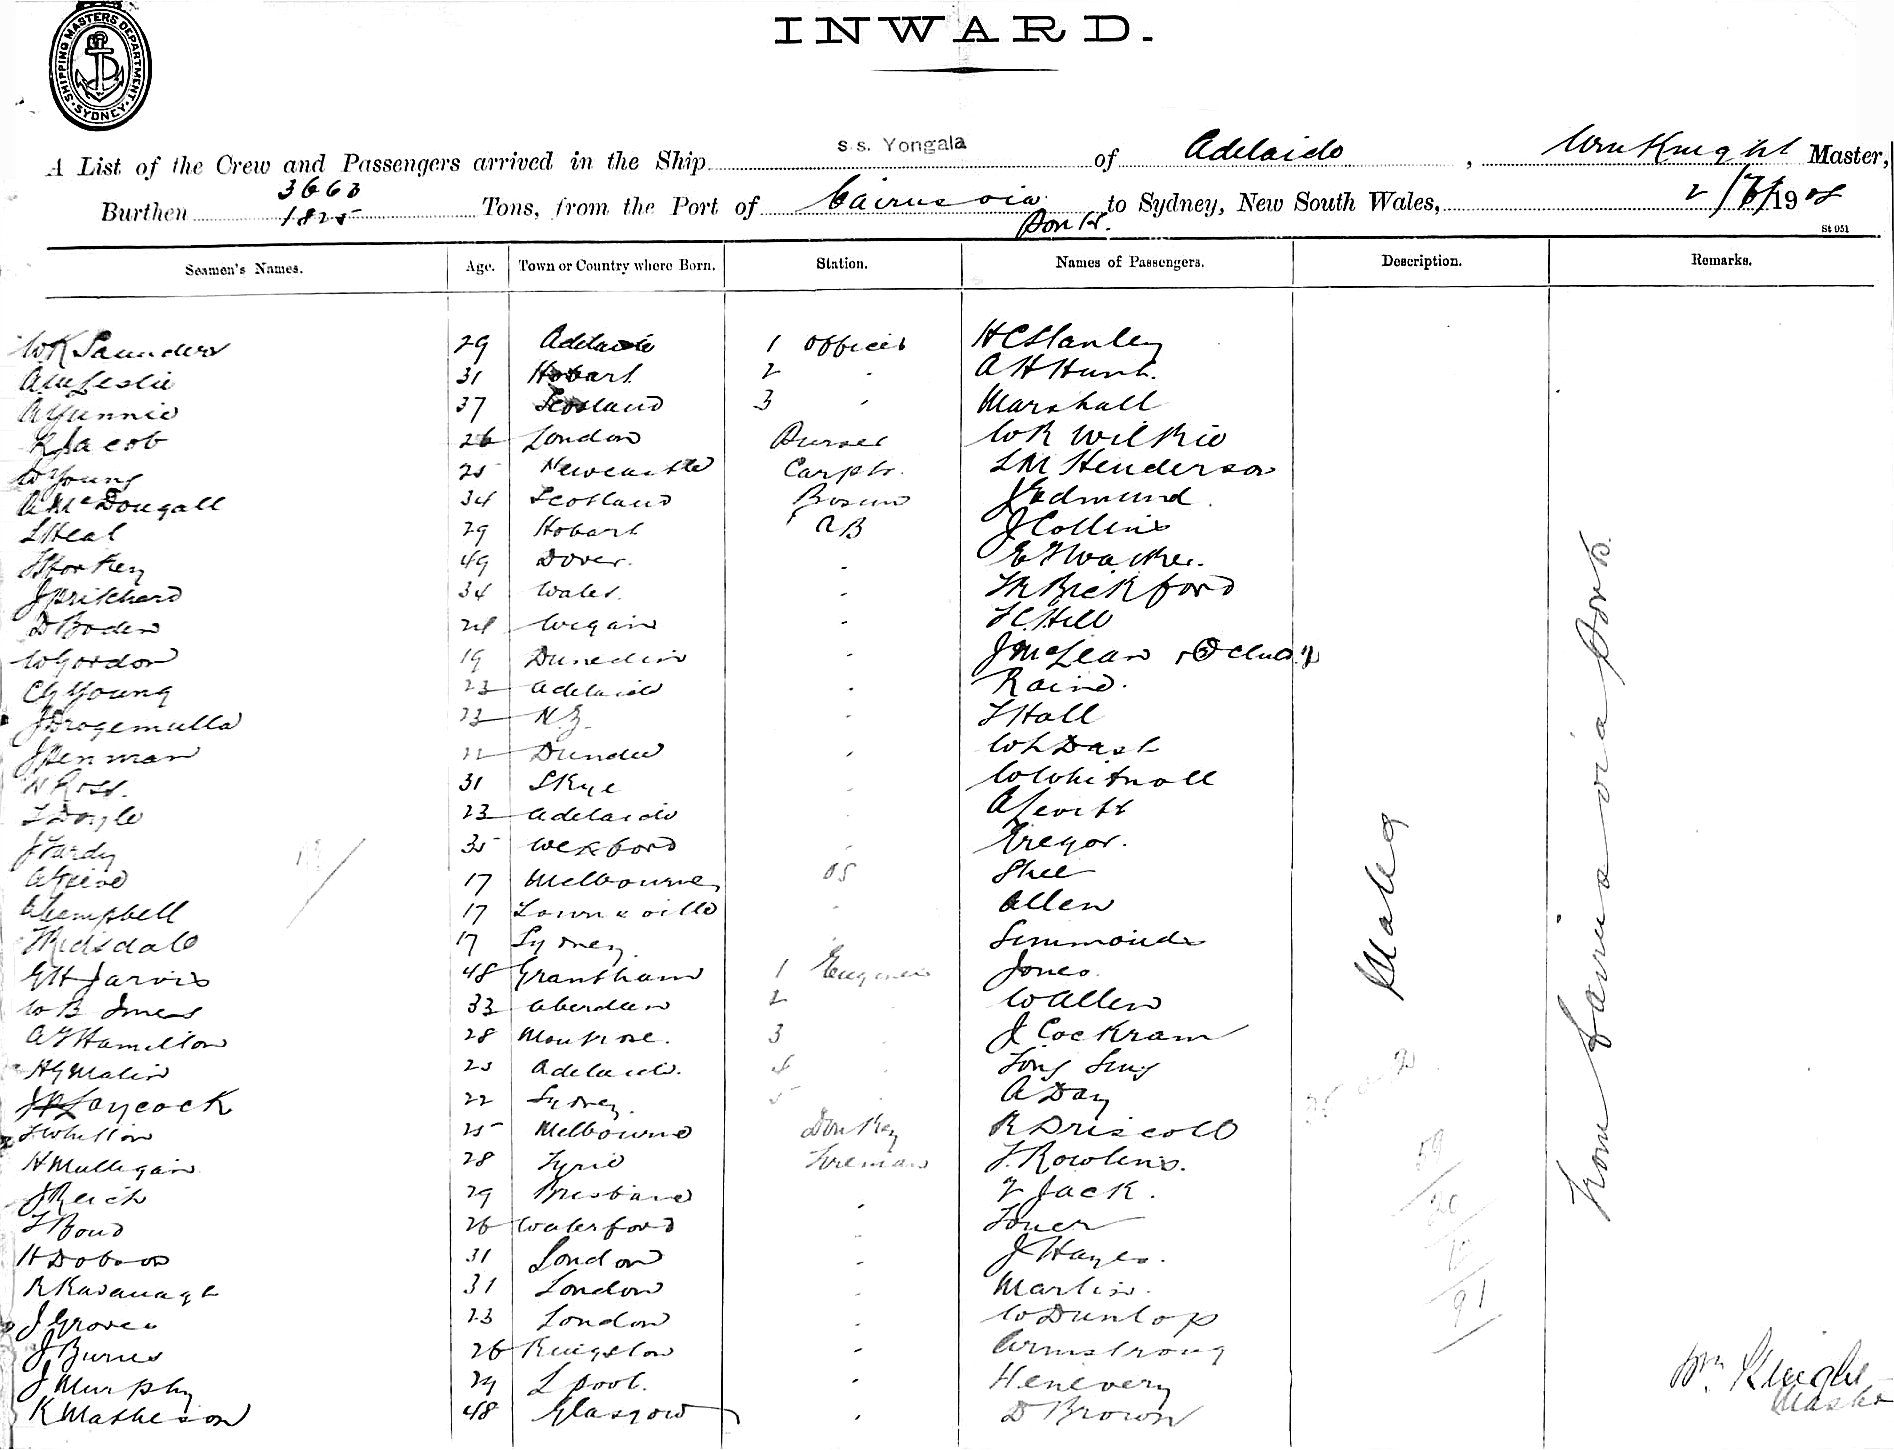 INWARD.
SHIPPING MASTERS DEPARTMENT SYDNEY
A List of the Crew and Passengers arrived in the Ship s.s. Yongala of Adelaide, Wm Knight Master,
Burthen 3663 1825 Tons, from the Port of Cairns via Ports. to Sydney, New South Wales, 1908
St 951
Seamen's Names. Age. Town or Country where Born. Station. Names of Passengers. Description. Remarks.
W K Saunders 29 Adelaide 1 Officer H C Stanley
A M Leslie 31 Hobart 2 " A H Hunt.
37 Scotland 3 " Marshall
R Jacob 26 London Purser W R Wilkie
W Young 25 Newcastle Carptr. L M Henderson
A McDougall 34 Scotland Bosun J Edmund
L Heal 29 Hobart AB J Collins
49 Dover. " E F Walker.
J Pritchard 34 Wales. " Bickford
D Boden 24 Wigan " Hill
W Gordon 19 Dunedin " J McLean
C G Young 23 Adelaide " Raine.
J Drogemulla 23 N.Z. " Hall
J Penman 22 Dundee " Dast
Ross. 31 Skye " W Whitnall
Doyle 23 Adelaide " A Levitt
J Fardy 35 Wexford " Tregor.
17 Melbourne OS Shee
A Campbell 17 Townsville " Allen
Ridsdale 17 Sydney " Simmonds
G H Jarvis 48 Grantham 1 Engineer Jones.
W B Innes 33 Aberdeen 2 W Allen
A F Hamilton 28 Montrose. 3 J Cockram
H G Malin 25 Adelaide. 4
Laycock 22 Sydney. 5 A Day
Whitton 25 Melbourne Donkey R Driscoll
H Mulligan 28 Tyrie Fireman Rowlins.
J Reich 29 Brisbane " Jack.
Bond 26 Waterford "
H Dobson 31 London " J Hayes.
R Kavanagh 31 London " Martin.
J Groves 23 London " W Dunlop
J Burns 26 Kingston " Armstrong
J Murphy 29 L'pool. " Henevery
K Matheson 48 Glasgow " D Brown
Males
From Cairns via Ports.
59
20
12
91
Wm Knight
Master